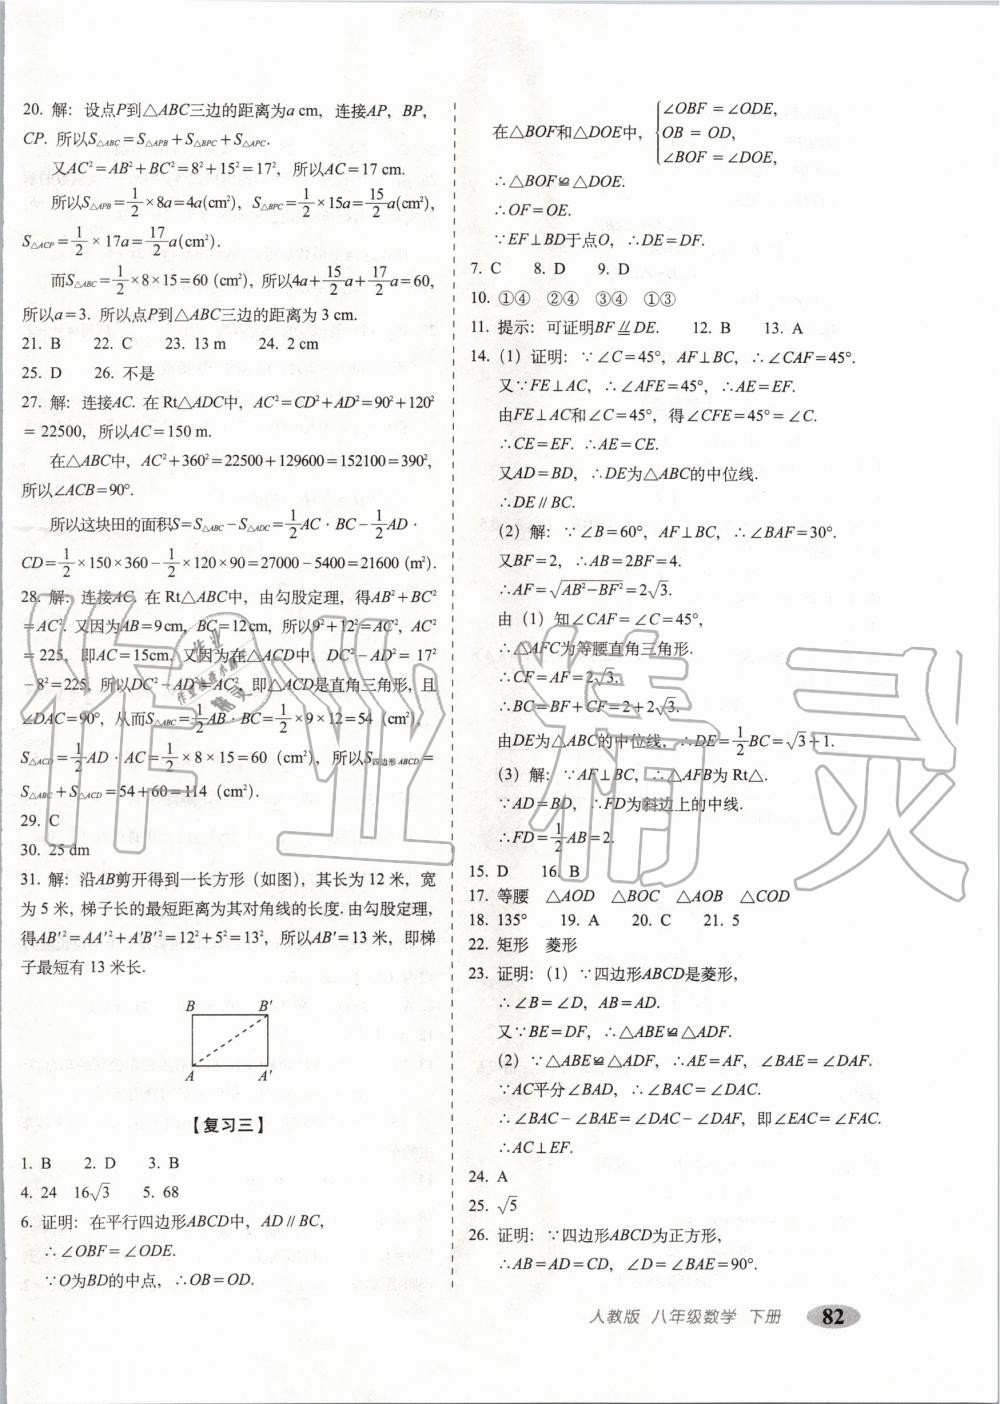 20. 解：设点P到△ABC三边的距离为a cm，连接AP，BP，
CP. 所以S△ABC=S△APB+S△BPC+S△APC.
又AC²=AB²+BC²=8²+15²=17²，所以AC=17 cm.
所以S△APB=1/2×8a=4a(cm²)，S△BPC=1/2×15a=15/2a(cm²)，
S△ACP=1/2×17a=17/2a(cm²).
而S△ABC=1/2×8×15=60 (cm²)，所以4a+15/2a+17/2a=60，
所以a=3. 所以点P到△ABC三边的距离为 3 cm.
21. B 22. C 23. 13 m 24. 2 cm
25. D 26. 不是
27. 解：连接AC. 在 Rt△ADC中，AC²=CD²+AD²=90²+120²
= 22500，所以AC=150 m.
在△ABC中，AC²+360²=22500+129600=152100=390²，
所以∠ACB=90°.
所以这块田的面积S=S△ABC-S△ADC=1/2AC·BC-1/2AD·
CD=1/2×150×360-1/2×120×90=27000-5400=21600 (m²).
28. 解：连接AC. 在 Rt△ABC中，由勾股定理，得AB²+BC²
=AC². 又因为AB=9cm，BC=12cm，所以9²+12²=AC²，AC²
=225，即AC=15cm. 又因为在△ACD中，DC²-AD²=17²
-8²=225，所以DC²-AD²=AC²，即△ACD是直角三角形，且
∠DAC=90°，从而S△ABC=1/2AB·BC=1/2×9×12=54 (cm²)，
S△ACD=1/2AD·AC=1/2×8×15=60 (cm²)，所以S四边形ABCD=
S△ABC+S△ACD=54+60=114 (cm²).
29. C
30. 25 dm
31. 解：沿AB剪开得到一长方形（如图），其长为 12 米，宽
为 5 米，梯子长的最短距离为其对角线的长度. 由勾股定理，
得AB′²=AA′²+A′B′²=12²+5²=13²，所以AB′=13 米，即梯
子最短有 13 米长.
B B′
A A′
【复习三】
1. B 2. D 3. B
4. 24 16√3 5. 68
6. 证明：在平行四边形ABCD中，AD∥BC，
∴∠OBF=∠ODE.
∵O为BD的中点，∴OB=OD.
在△BOF和△DOE中，{∠OBF=∠ODE，
OB=OD，
∠BOF=∠DOE，
∴△BOF≌△DOE.
∴OF=OE.
∵EF⊥BD于点O，∴DE=DF.
7. C 8. D 9. D
10. ①④ ②④ ③④ ①③
11. 提示：可证明BF⫽DE. 12. B 13. A
14. (1) 证明：∵∠C=45°，AF⊥BC，∴∠CAF=45°.
又∵FE⊥AC，∴∠AFE=45°，∴AE=EF.
由FE⊥AC和∠C=45°，得∠CFE=45°=∠C.
∴CE=EF. ∴AE=CE.
又AD=BD，∴DE为△ABC的中位线.
∴DE∥BC.
(2) 解：∵∠B=60°，AF⊥BC，∴∠BAF=30°.
又BF=2，∴AB=2BF=4.
∴AF=√(AB²-BF²)=2√3.
由（1）知∠CAF=∠C=45°，
∴△AFC为等腰直角三角形.
∴CF=AF=2√3.
∴BC=BF+CF=2+2√3.
由DE为△ABC的中位线，∴DE=1/2BC=√3+1.
(3) 解：∵AF⊥BC，∴△AFB为 Rt△.
∵AD=BD，∴FD为斜边上的中线.
∴FD=1/2AB=2.
15. D 16. B
17. 等腰 △AOD △BOC △AOB △COD
18. 135° 19. A 20. C 21. 5
22. 矩形 菱形
23. 证明：(1) ∵四边形ABCD是菱形，
∴∠B=∠D，AB=AD.
又∵BE=DF，∴△ABE≌△ADF.
(2) ∵△ABE≌△ADF，∴AE=AF，∠BAE=∠DAF.
∵AC平分∠BAD，∴∠BAC=∠DAC.
∴∠BAC-∠BAE=∠DAC-∠DAF，即∠EAC=∠FAC.
∴AC⊥EF.
24. A
25. √5
26. 证明：∵四边形ABCD为正方形，
∴AB=AD=CD，∠D=∠BAE=90°.
人教版 八年级数学 下册 82
作业精灵